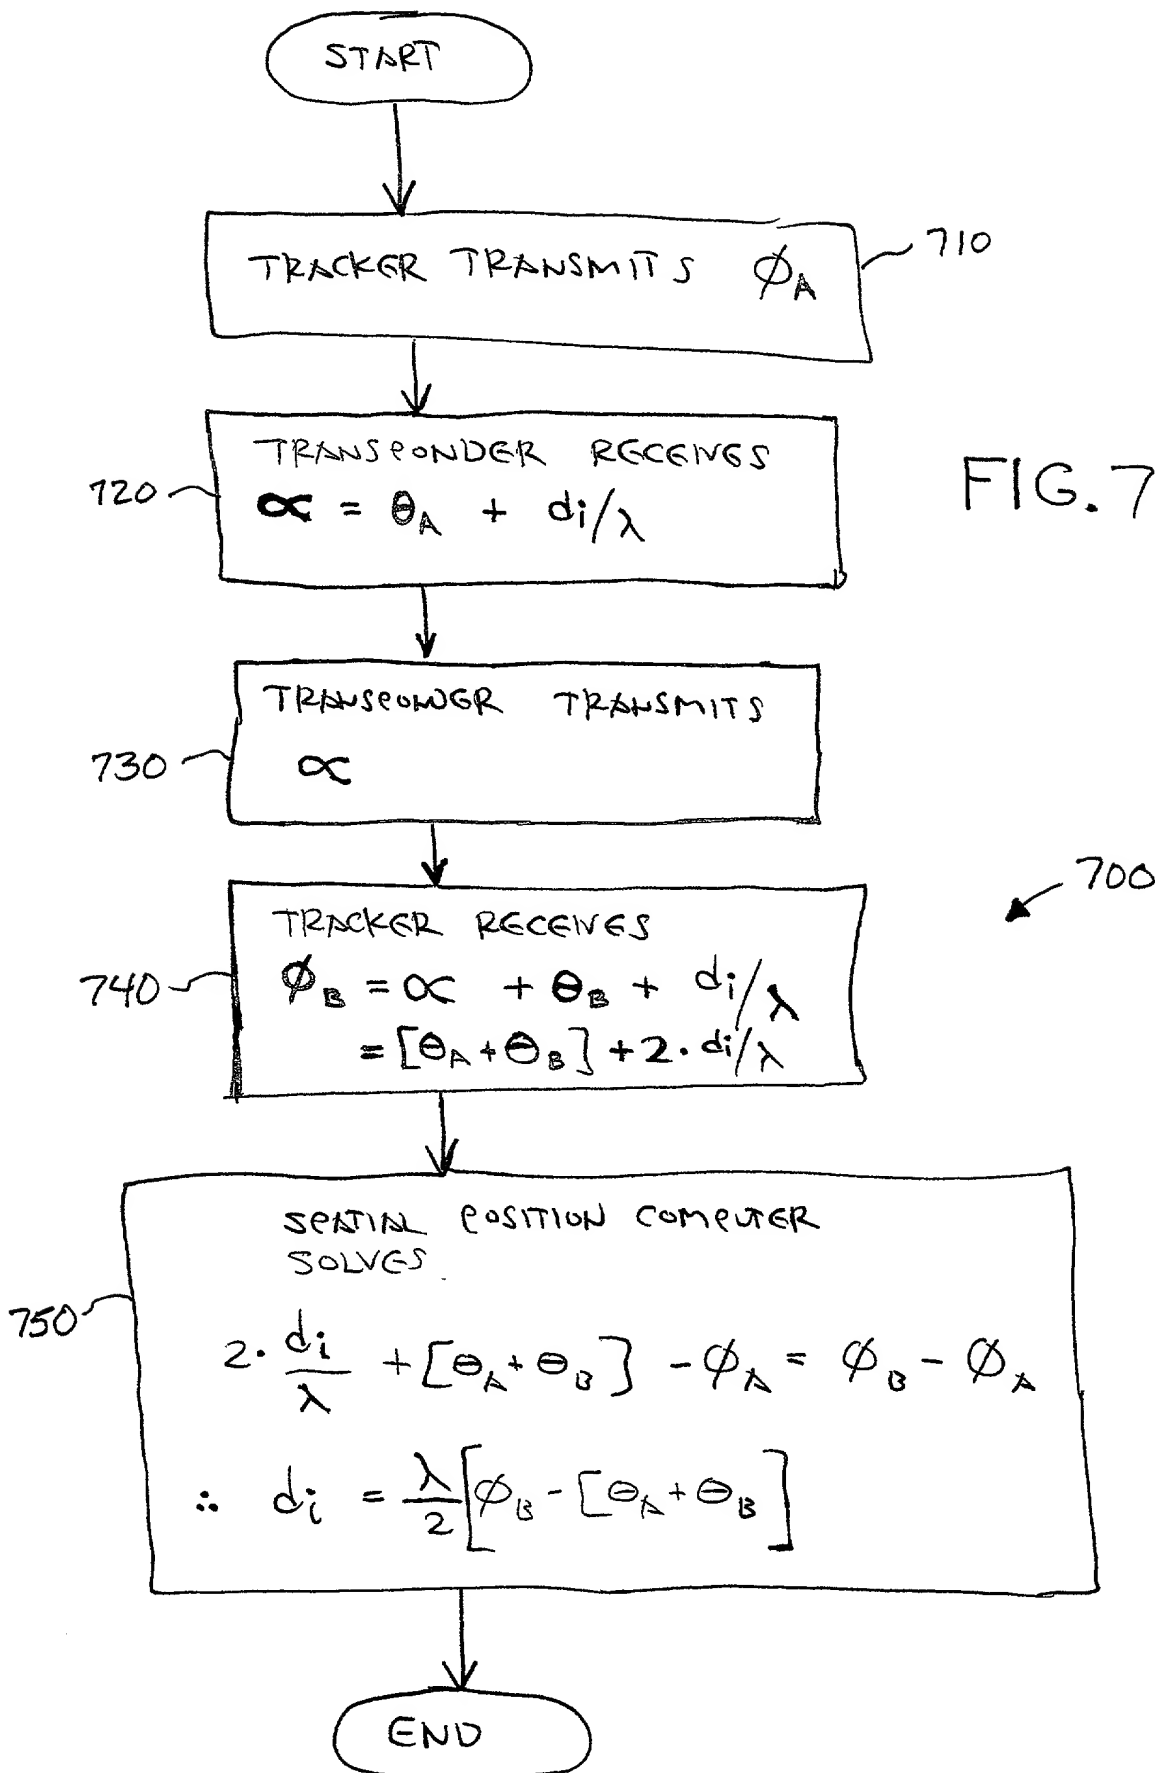 START
TRACKER TRANSMITS ϕ_A
710
TRANSPONDER RECEIVES
∝ = θ_A + di/λ
720
FIG. 7
TRANSPONDER TRANSMITS
∝
730
700
TRACKER RECEIVES
ϕ_B = ∝ + θ_B + di/λ
= [θ_A + θ_B] + 2 · di/λ
740
SPATIAL POSITION COMPUTER
SOLVES
750
2 · di/λ + [θ_A + θ_B] - ϕ_A = ϕ_B - ϕ_A
∴ di = λ/2 [ϕ_B - [θ_A + θ_B]
END